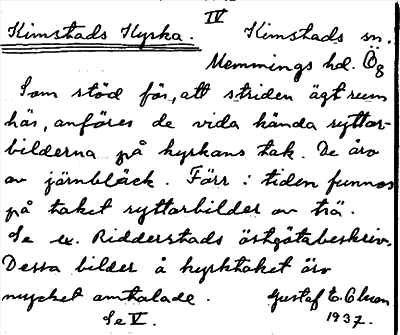 IV
Kimstads Kyrka. Kimstads sn.
Memmings hd. Ög
Som stöd för, att striden ägt rum
här, anföres de vida kända ryttar-
bilderna på kyrkans tak. De äro
av järnbläck. Förr i tiden funnos
på taket ryttarbilder av trä.
Se ex. Ridderstads östgötabeskriv.
Dessa bilder å kyrktaket äro
mycket omtalade. Gustaf E. Olsson
Se V. 1937.